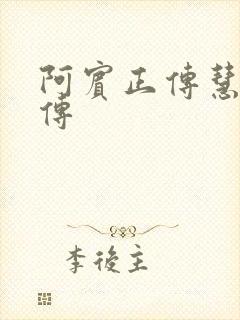 阿賓正傳慧
傳
李後主